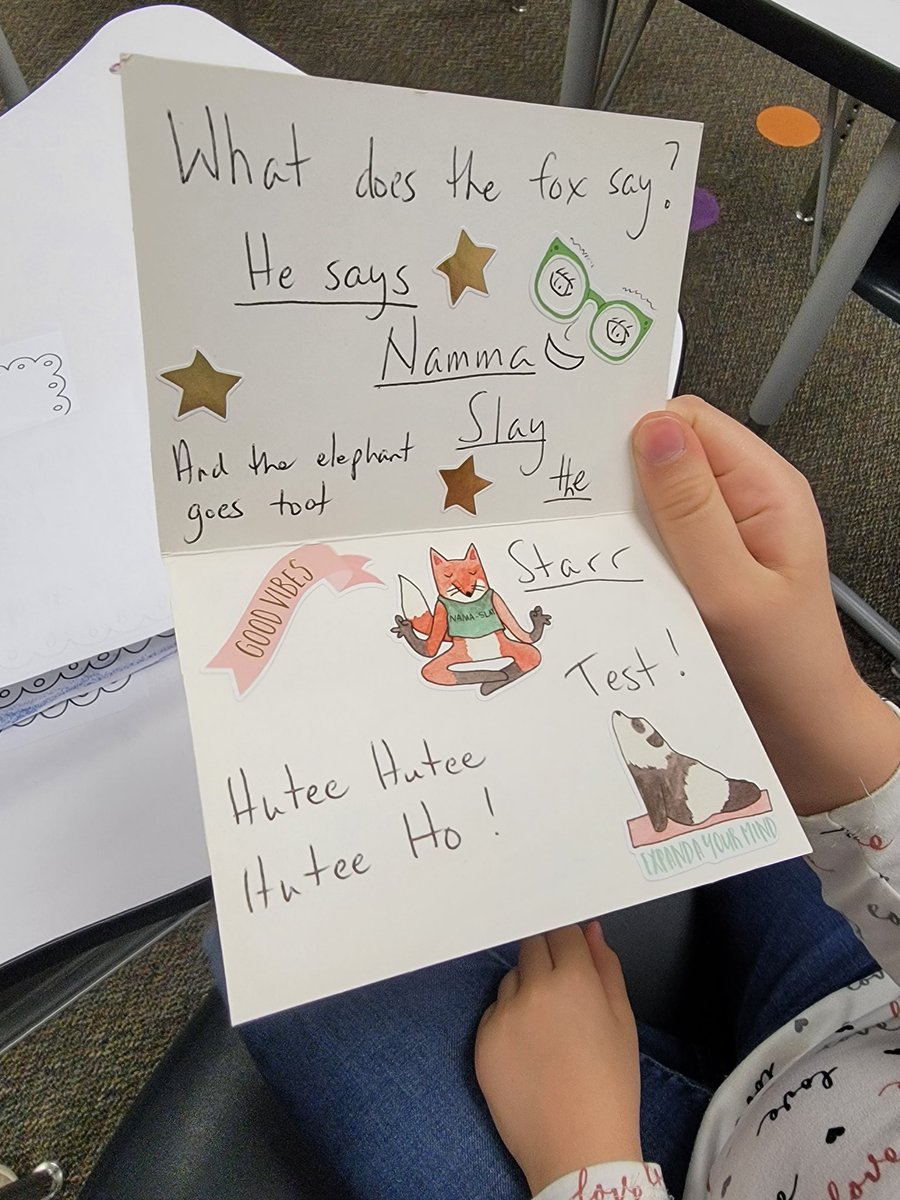 What does the fox say?
He says
Namma
Slay
And the elephant
the
goes toot
Starr
GOOD VIBES
NAMA-SLAY
Test!
Hutee Hutee
Hutee Ho!
EXPANDA YOUR MIND
love
love
love